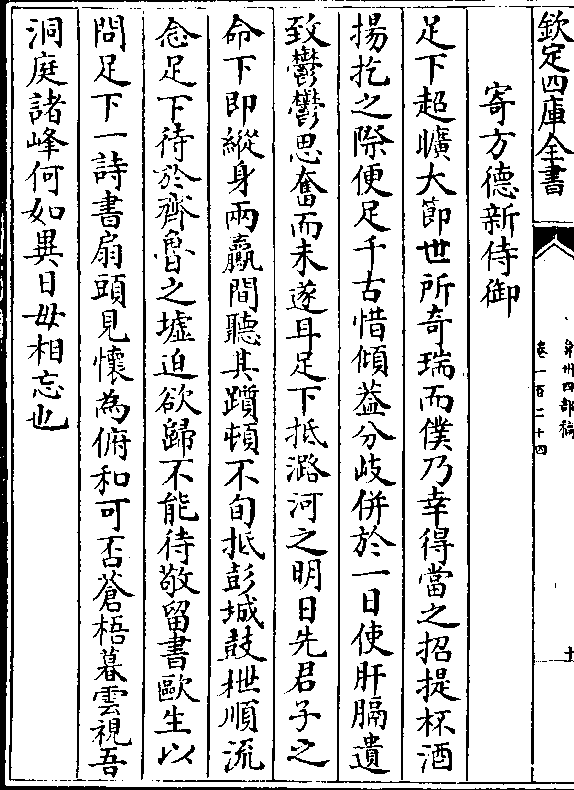 欽定四庫全書
弇州四部稿
卷一百二十四
十
寄方德新侍御
足下超曠大節世所奇瑞而僕乃幸得當之招提杯酒
揚扢之際便足千古惜傾葢分岐併於一日使肝膈遺
致鬱鬱思奮而未遂耳足下抵潞河之明日先君子之
命下即縱身兩驘間聽其躓頓不旬抵彭城鼓枻順流
念足下待於齊魯之墟迫欲歸不能待敬留書歐生以
問足下一詩書扇頭見懷為俯和可否蒼梧暮雲視吾
洞庭諸峰何如異日毋相忘也